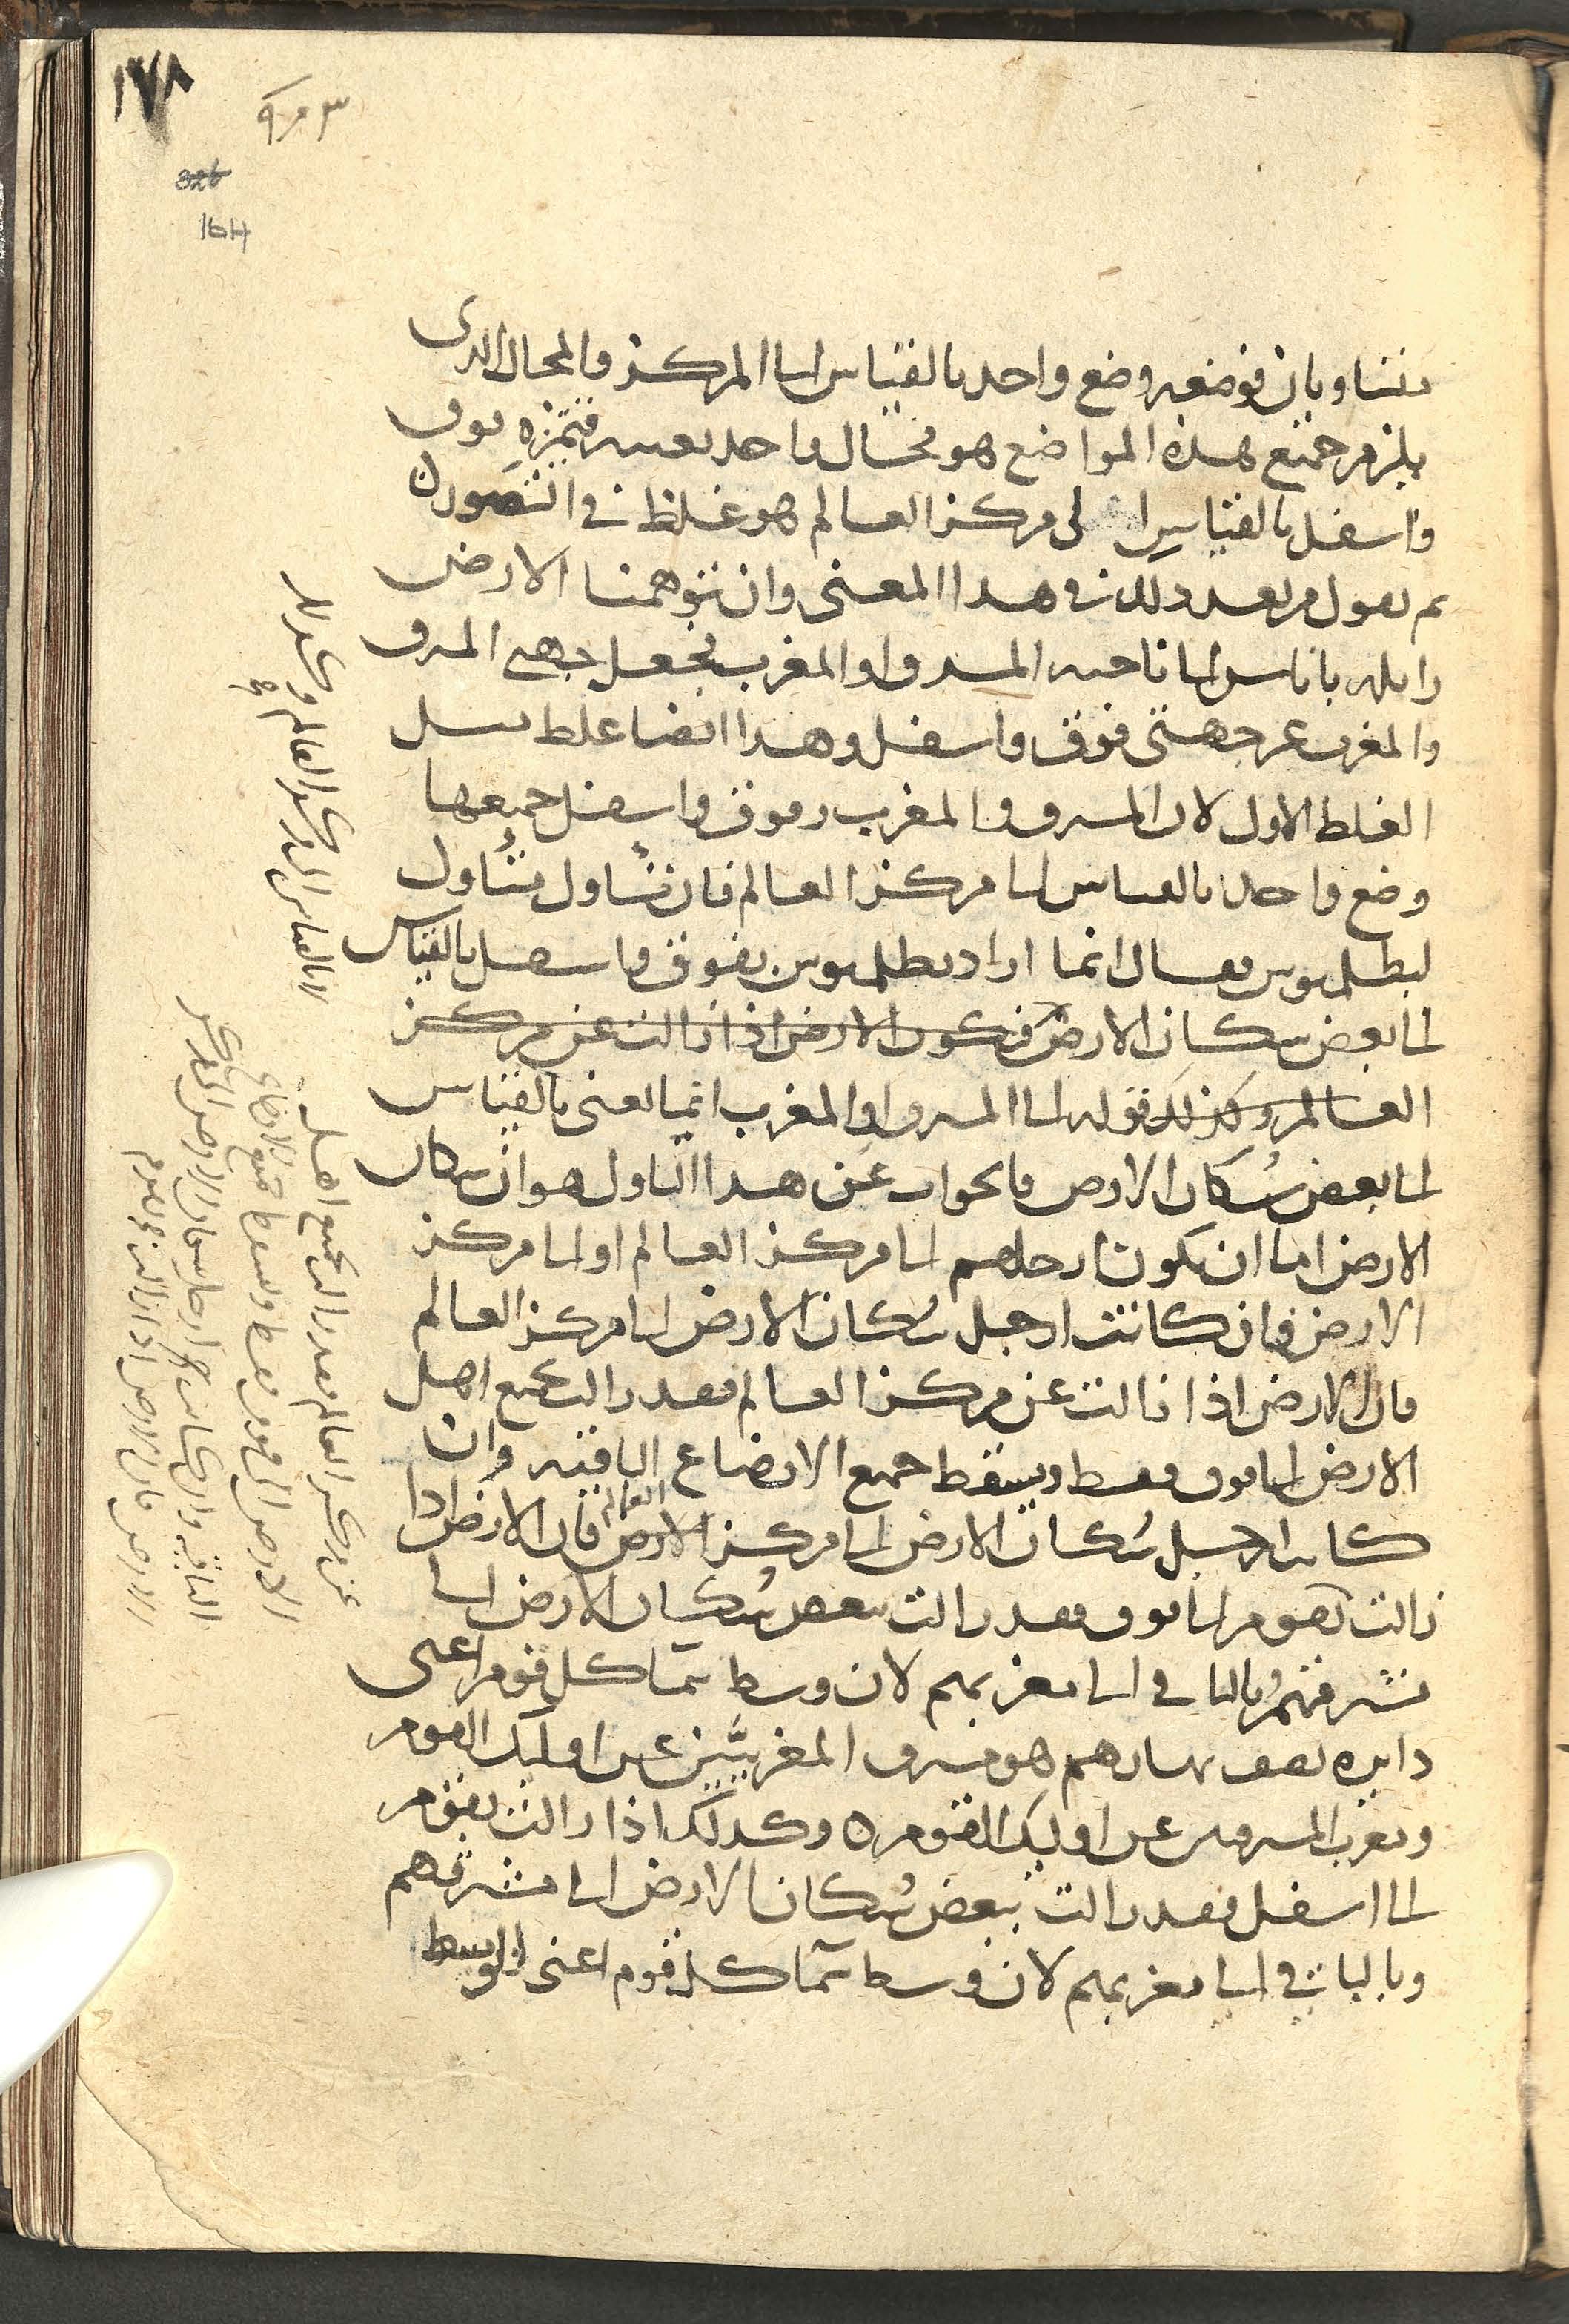 ١٧٨
٣ م ٩
32b
16H
متساويان فوضعه وضع واحد بالقياس الى المركز والمحال الذى
يلزم جميع هذه المواضع هو محال واحد بعينه فتميزه بفوق
واسفل بالقياس الى مركز العالم هو غلط فى التصور ○
ثم نقول من بعد ذلك فى هذا المعنى وان توهمنا الارض
زايله باناس الى ناحيه المشرق او المغرب فجعل جهتى المشرق
والمغرب غير جهتى فوق واسفل وهذا ايضا غلط مثل
الغلط الاول لان المشرق والمغرب وفوق واسفل جميعها
وضع واحد بالقياس الى مركز العالم فان تأول متأول
لبطلميوس فقال انما اراد بطلميوس بفوق واسفل بالقياس
الى بعض سكان الارض فتكون الارض اذا زالت عن مركز
العالم وكذلك قوله الى المشرق او المغرب انما يعنى بالقياس
الى بعض سُكان الارض فالجواب عن هذا التاول هو ان سكان
الارض اما ان تكون ارجلهم الى مركز العالم او الى مركز
الارض فان كانت ارجل سُكان الارض الى مركز العالم
فان الارض اذا زالت عن مركز العالم فقد زالت بجميع اهل
الارض الى فوق فقط ويسقط جميع الاوضاع الباقيه وان
كانت ارجل سُكان الارض الى مركز الارض العالم فان الارض اذا
زالت بقوم الى فوق فقد زالت ببعض سُكان الارض الى
مشرقهم وبالباقى الى مغربهم لان وسط سمآ كل قوم اعنى
دايره نصف نهارهم هو مشرق المغربيّين عن اوليك القوم
ومغرب المشرقيين عن اوليك القوم ○ وكذلك اذا زالت بقوم
الى اسفل فقد زالت ببعض سُكان الارض الى مشرقهم
وبالباقى الى مغربهم لان وسط سمآ كل قوم اعنى الوسط
لا بالقياس الى مركز العالم
عن مركز العالم فقد زالت بجميع اهل
الارض الى فوق فقط ويسقط جميع الاوضاع
الباقيه وان كانت ارجل سكان الارض الى مركز
الارض فان الارض اذا زالت بقوم